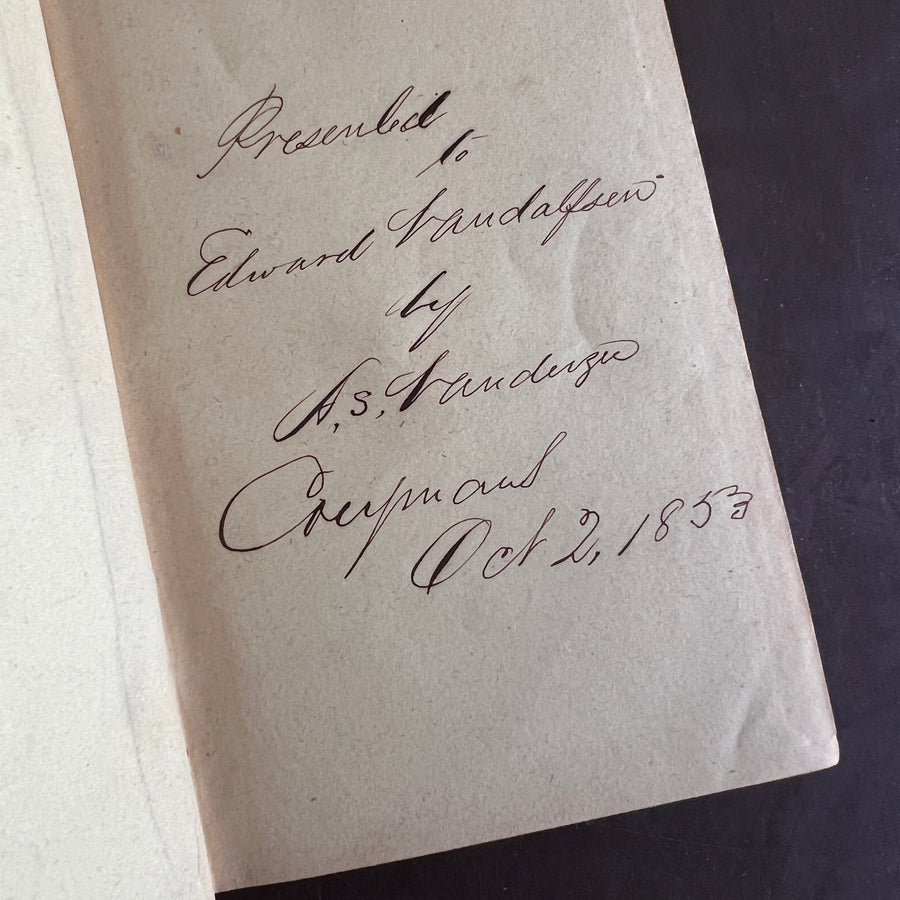 Presented
to
Edward Vandalfsen
by
A. S. Vanderzee
Coeymans
Oct 2, 1853